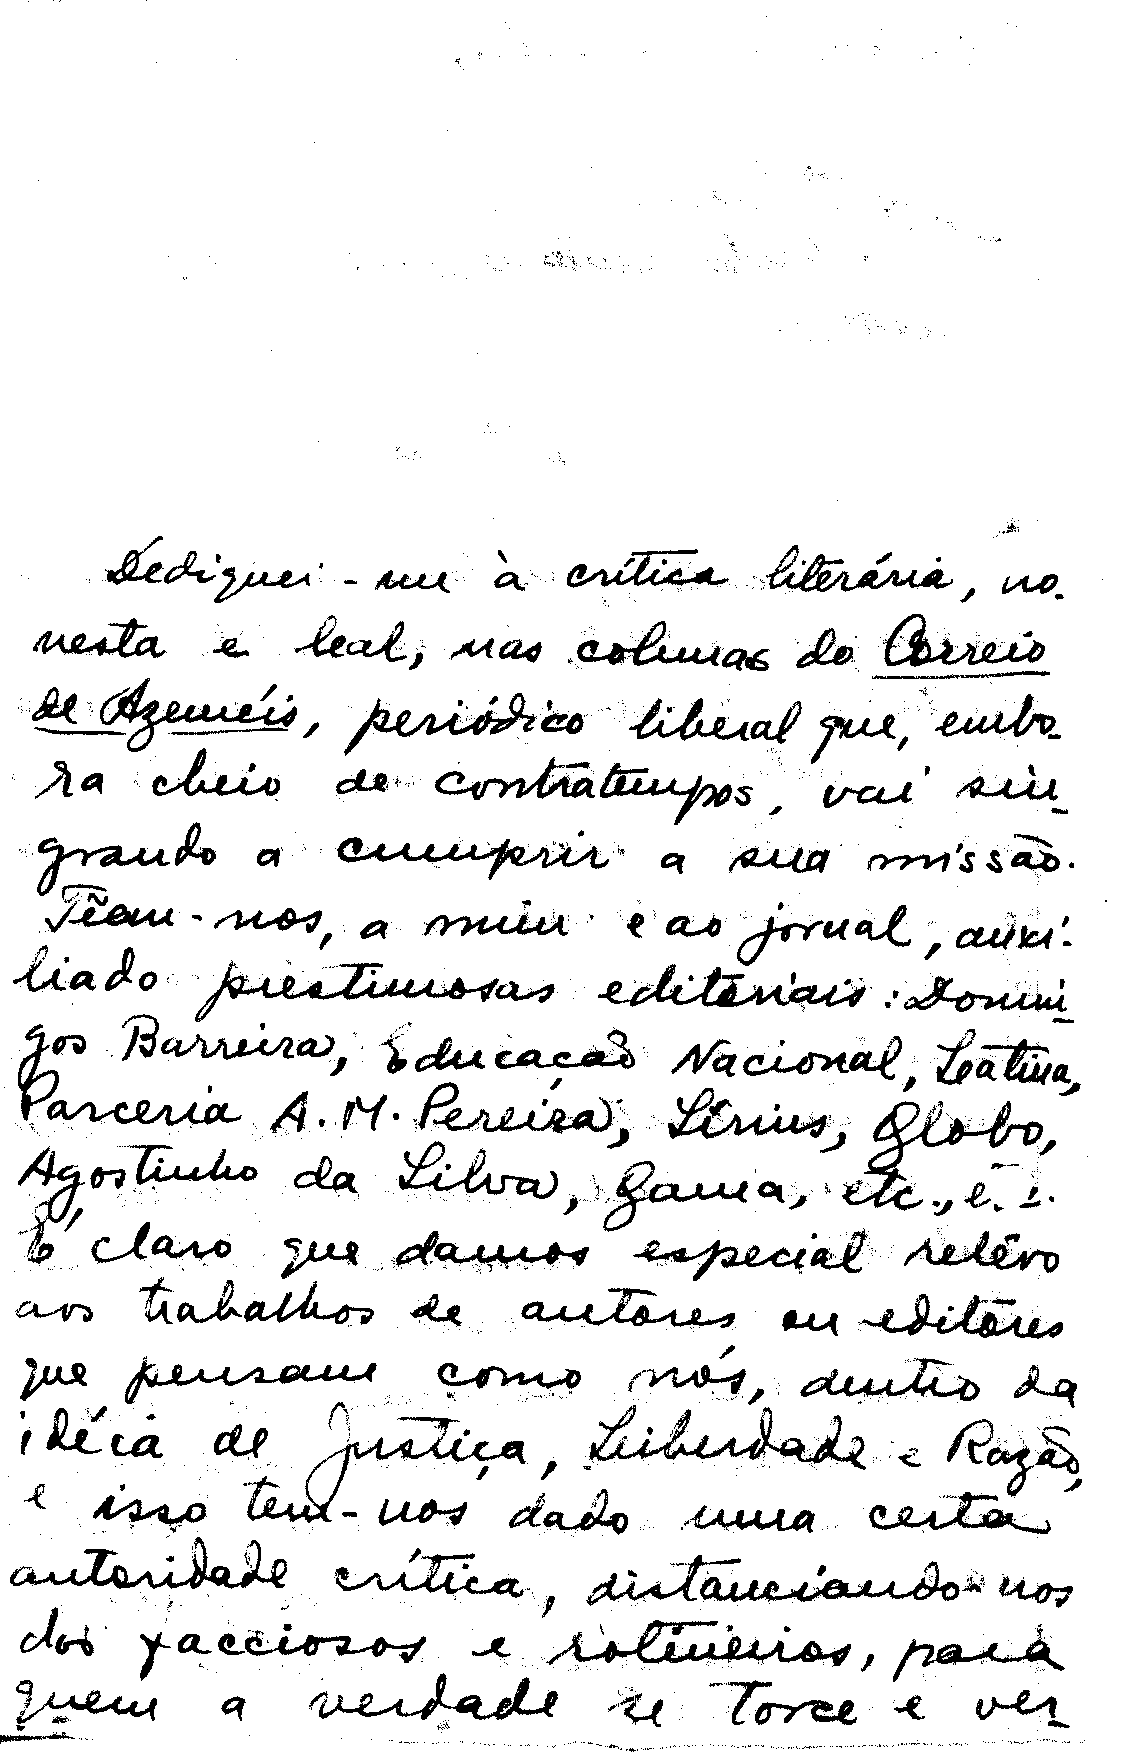 Dediquei-me à crítica literária, ho-
nesta e leal, nas colunas do Correio
de Azeméis, periódico liberal que, embo-
ra cheio de contratempos, vai sin-
grando a cumprir a sua missão.
Têem-nos, a mim e ao jornal, auxi-
liado prestimosas editoriais: Domin-
gos Barreira, Educação Nacional, Latina,
Parceria A. M. Pereira, Sírius, Globo,
Agostinho da Silva, Gama, etc.,
É claro que damos especial relêvo
aos trabalhos de autores ou editores
que pensam como nós, dentro da
idéia de Justiça, Liberdade e Razão,
e isso tem-nos dado uma certa
autoridade crítica, distanciando-nos
dos facciosos e rotineiros, para
quem a verdade se torce e ver-